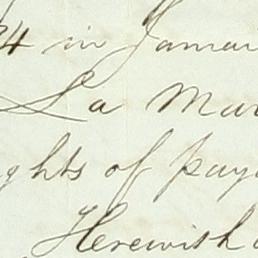 24 in Januar
La Mar
ghts of pay
Herewith